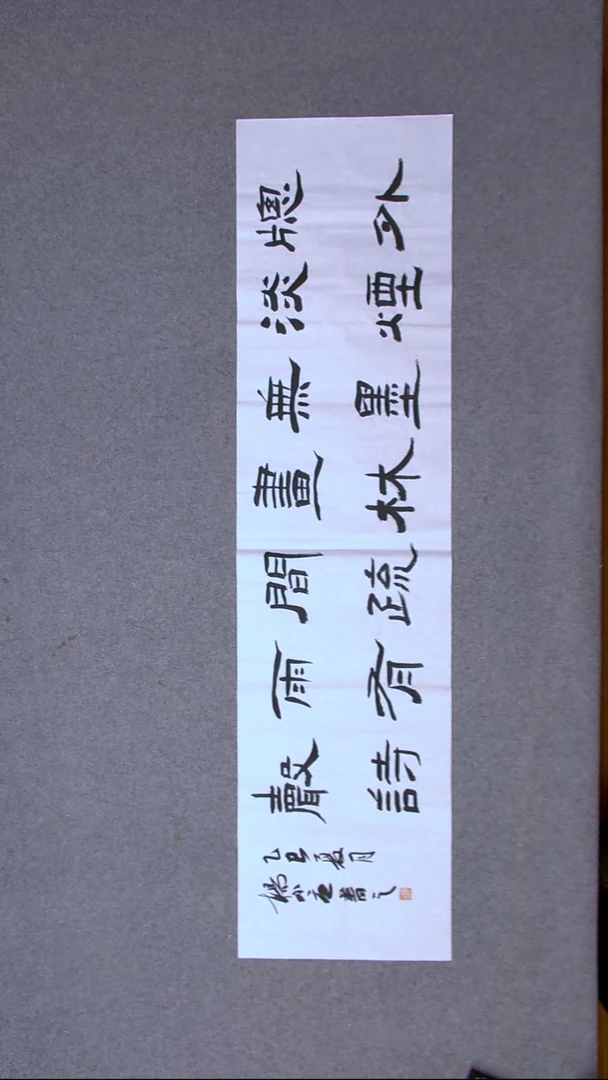 牕外
淡煙
無墨
畫林
間疏
雨有
聲詩
乙巳月
楊小書之